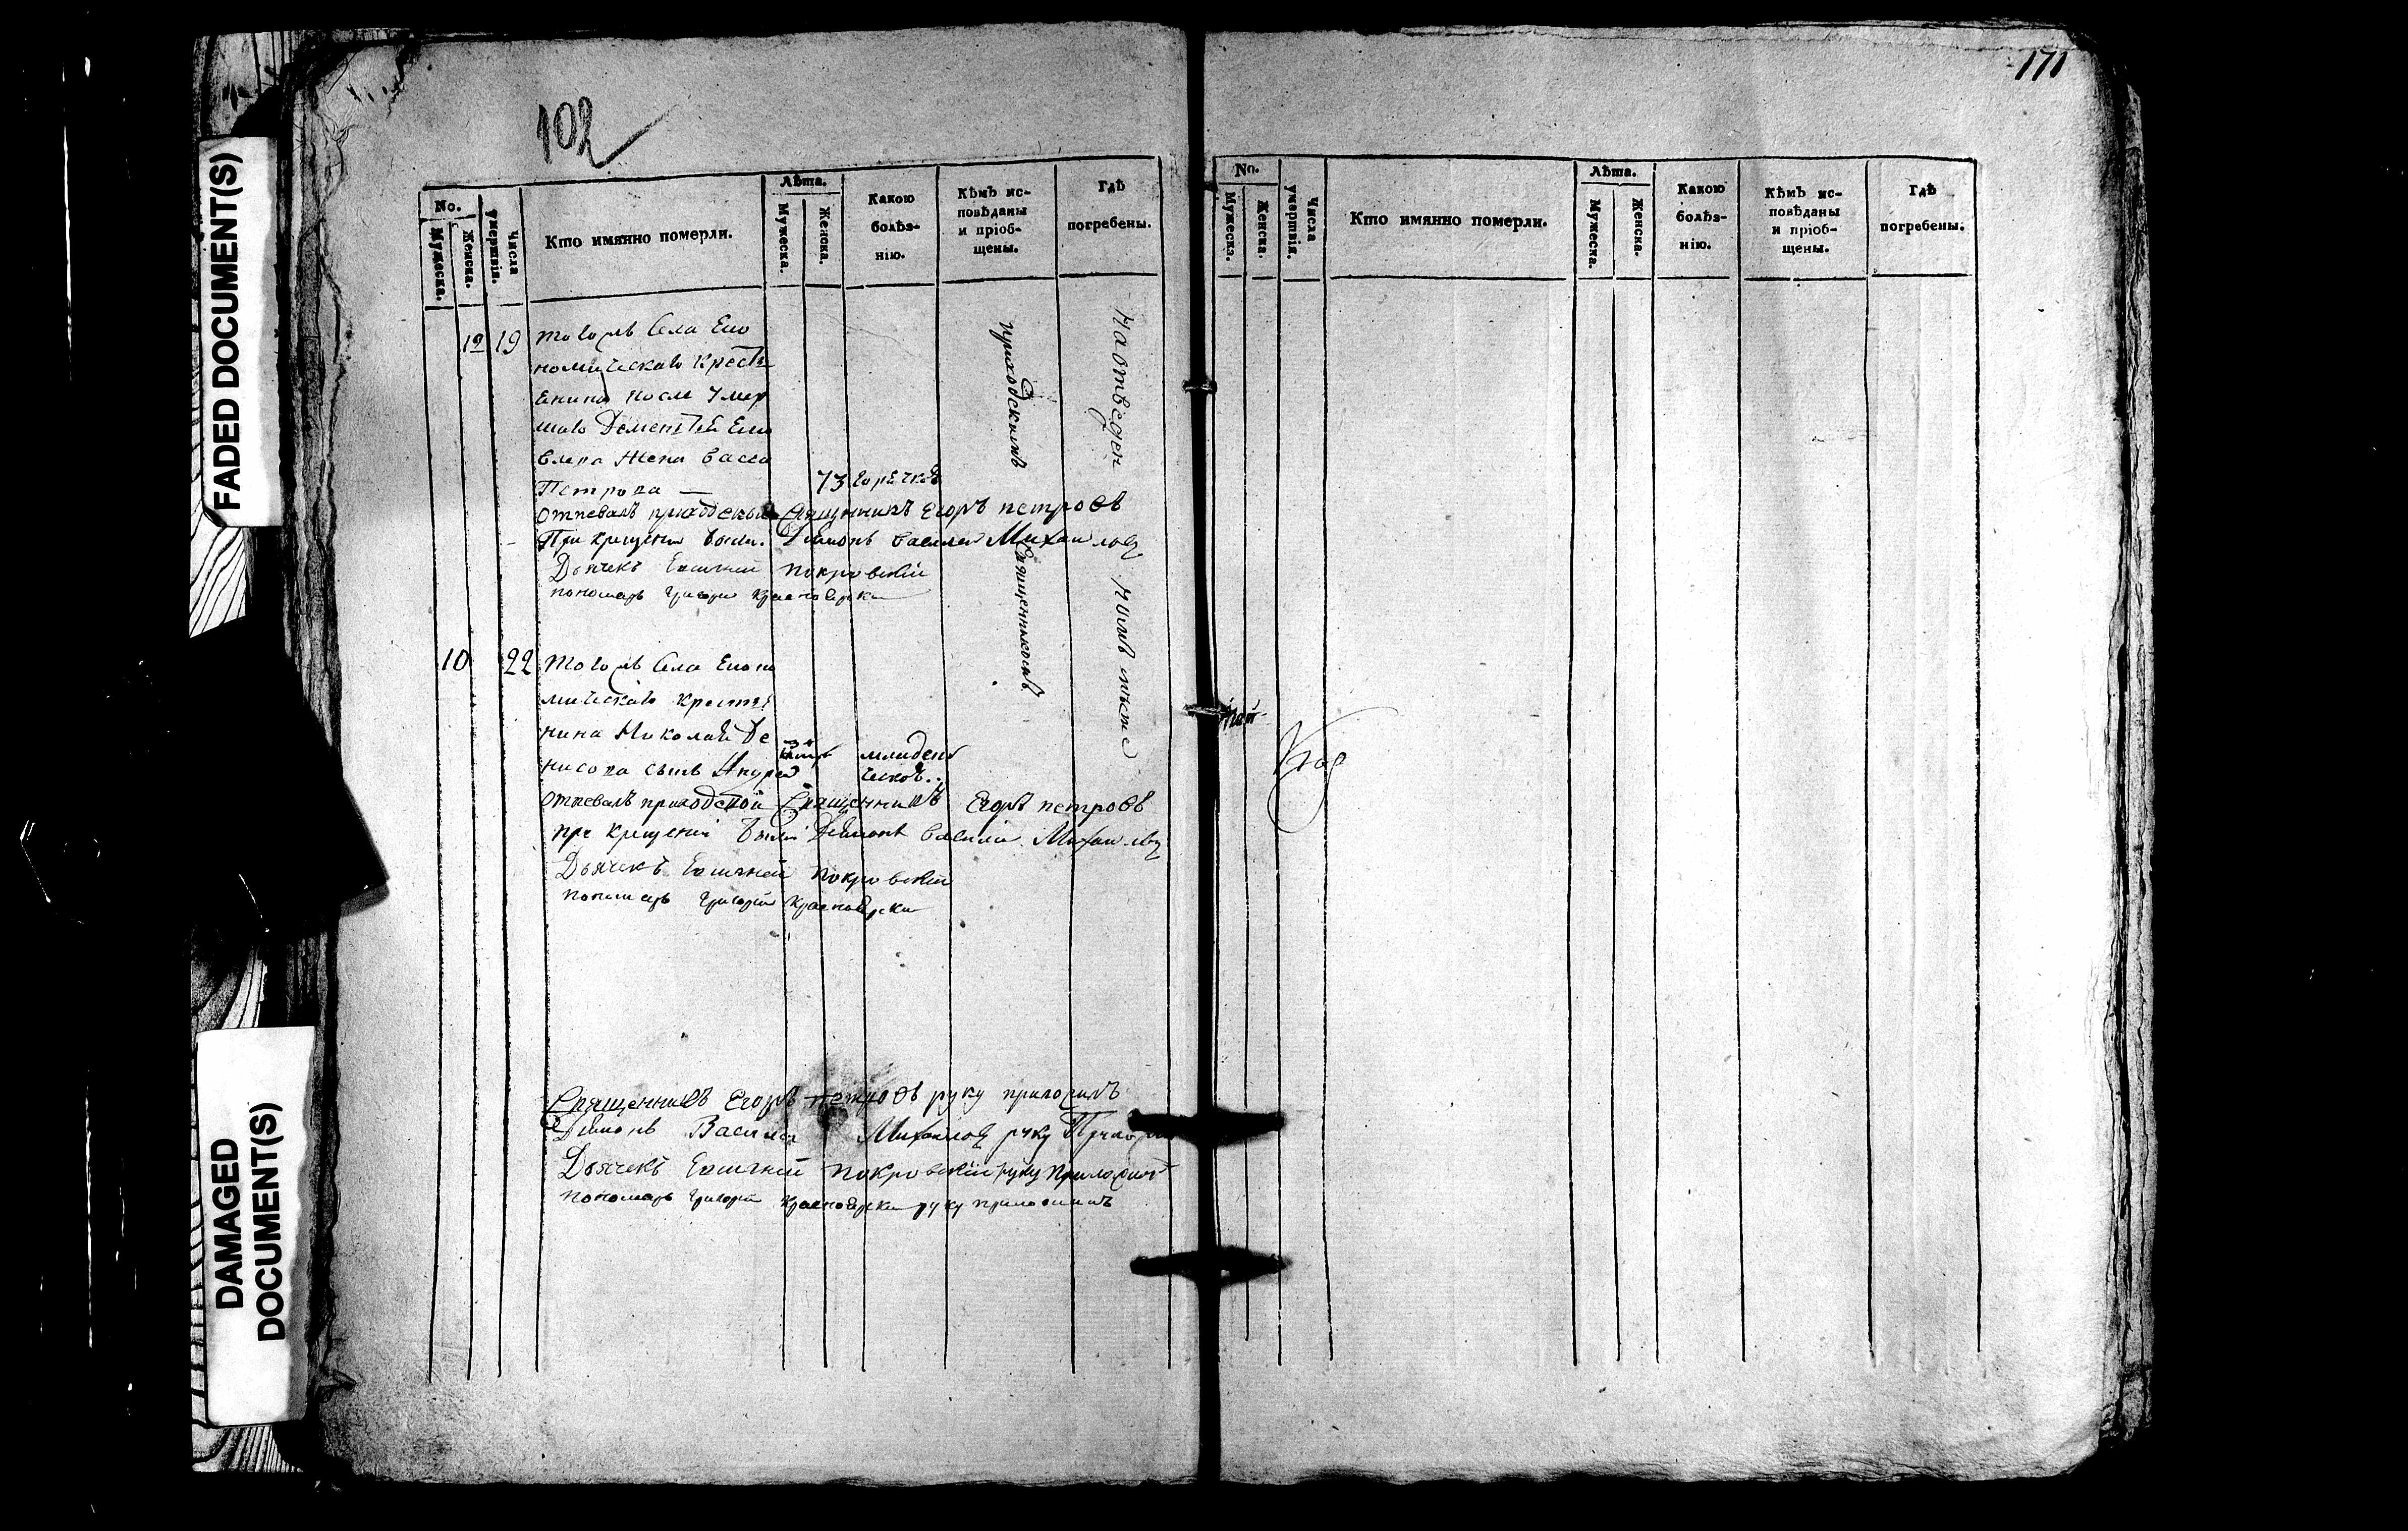 FADED DOCUMENT(S)
DAMAGED
DOCUMENT(S)
102
No.
Мужеска.
Женска.
Числа
умертвія.
Кто имянно померли.
Лѣта.
Мужеска.
Женска.
Какою
болѣз-
нію.
Кѣмъ ис-
повѣданы
и пріоб-
щены.
Гдѣ
погребены.
19 тогожъ села Еко
номическаго крестъ
енина после умер
шаго Дементей
жена Васса
Петрова —
73
приходскимъ
священникомъ
На отведен
номъ месте
отпевалъ приходской священникъ Егоръ петровъ
При крещени были Дияконъ василей Михаиловъ
Дьячекъ Покровскій
пономарь Григори Красноярски
10 22 тогожъ села Еконо
мическаго крестья
нина Николай Де
нисова сынъ
младен
ческой
отпевалъ приходской Священникъ Егоръ петровъ
при крещениі были Дияконъ василій Михаиловъ
Дьячекъ Покровскій
пономарь Григорій Красноярски
Священникъ Егоръ петровъ руку приложилъ
Дияконъ Василей Михаиловъ руку
Дьячекъ Покровскій руку приложилъ
пономарь Григорій Красноярски руку приложилъ
171
No.
Мужеска.
Женска.
Числа
умертвія.
Кто имянно померли.
Лѣта.
Мужеска.
Женска.
Какою
болѣз-
нію.
Кѣмъ ис-
повѣданы
и пріоб-
щены.
Гдѣ
погребены.